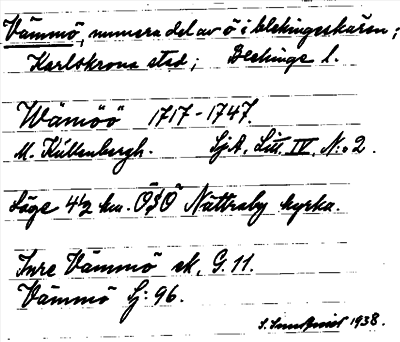 Vämmö, numera del av ö i blekingeskären;
Karlskrona stad; Blekinge l.
Wämöö 1717-1747.
M. Küllenbergh. SjA, Litt. IV, N:o 2.
Läge 4½ km. OSO Nättraby kyrka.
Inre Vämmö sk. G. 11.
Vämmö Sj: 96.
S. Sundqvist 1938.